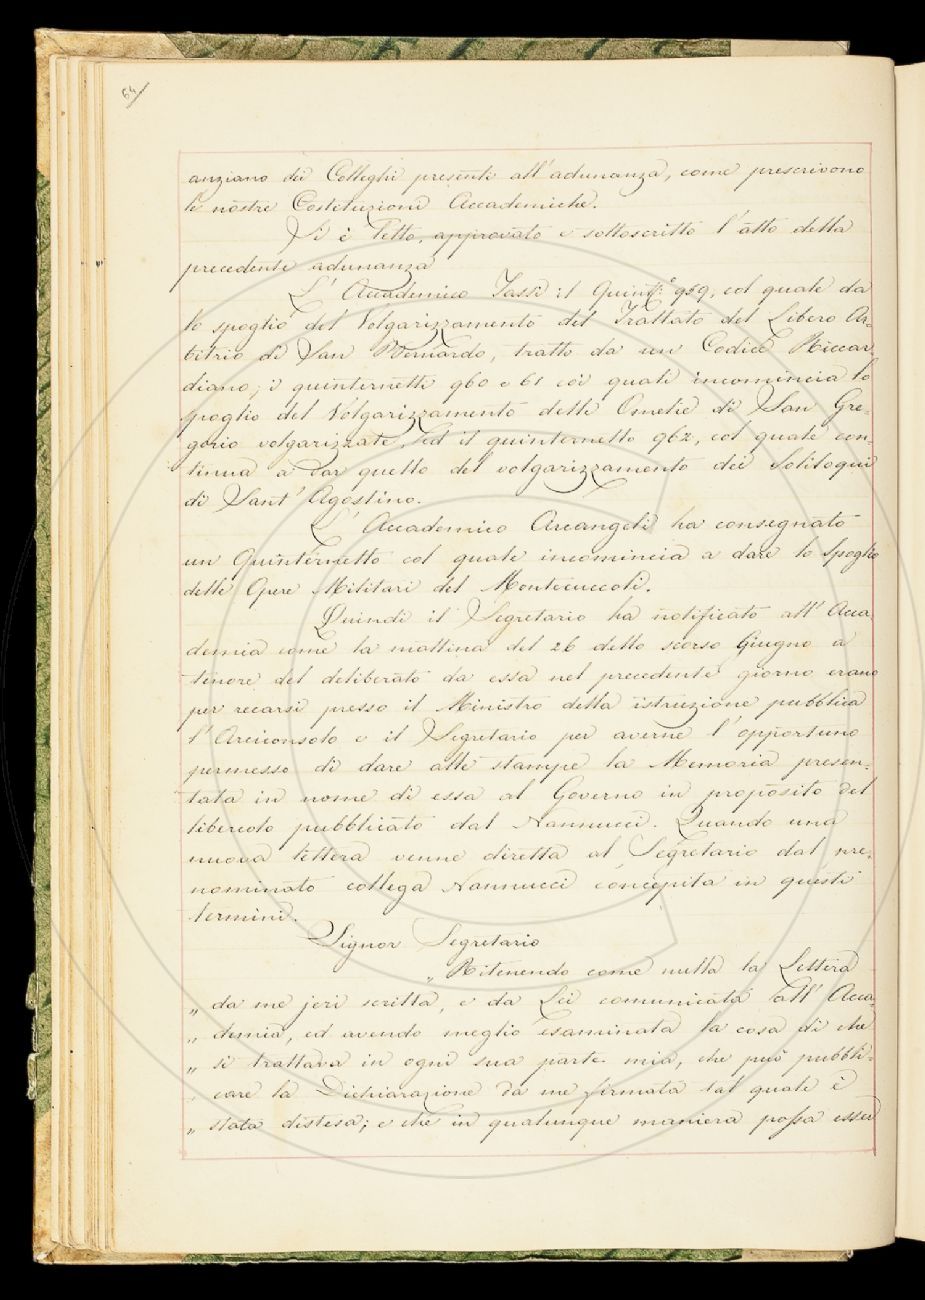 64
anziano dei Colleghi presenti all'adunanza, come prescrivono
le nostre Costituzioni Accademiche.
Si è letto, approvato e sottoscritto l'atto della
precedente adunanza
L'Accademico Tassi il Quint.º 959, col quale dà
lo spoglio del Volgarizzamento del Trattato del Libero Ar-
bitrio di San Bernardo, tratto da un Codice Riccar-
diano; i quinternetti 960 e 61 coi quali incomincia lo
spoglio del Volgarizzamento delle Omelie di San Gre-
gorio volgarizzate, ed il quinternetto 962, col quale con-
tinua a dar quello del volgarizzamento dei Soliloqui
di Sant'Agostino.
L'Accademico Arcangeli ha consegnato
un Quinternetto col quale incomincia a dare lo Spoglio
delle Opere Militari del Montecuccoli.
Quindi il Segretario ha notificato all'Acca-
demia come la mattina del 26 dello scorso Giugno a
tenore del deliberato da essa nel precedente giorno erano
per recarsi presso il Ministro della istruzione pubblica
l'Arciconsolo e il Segretario per averne l'opportuno
permesso di dare alle stampe la Memoria presen-
tata in nome di essa al Governo in proposito del
libercolo pubblicato dal Nannucci. Quando una
nuova lettera venne diretta al Segretario dal pre-
nominato collega Nannucci concepita in questi
termini.
Signor Segretario
„ Ritenendo come nulla la Lettera
„ da me jeri scritta, e da Lei comunicata all'Acca-
„ demia, ed avendo meglio esaminata la cosa di che
„ si trattava in ogni sua parte mia, che può pubbli-
„ care la Dichiarazione da me firmata tal quale è
„ stata distesa; e che in qualunque maniera possa esser